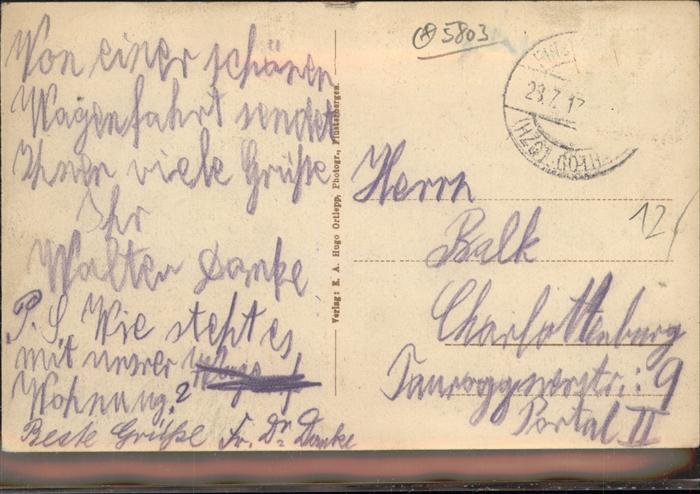 Von einer schönen
Wagenfahrt sendet
Ihnen viele Grüße
Ihr
Walter Danke
P.S. Wie steht es
mit unsrer
Wohnung?
Beste Grüße Fr. Dr. Danke
Verlag: E. A. Hugo Ortlepp, Photogr., Finsterbergen.
5803
28.7.17
(HZGT. GOTHA
12
Herrn
Balk
Charlottenburg
Tauroggenerstr.: 9
Portal II